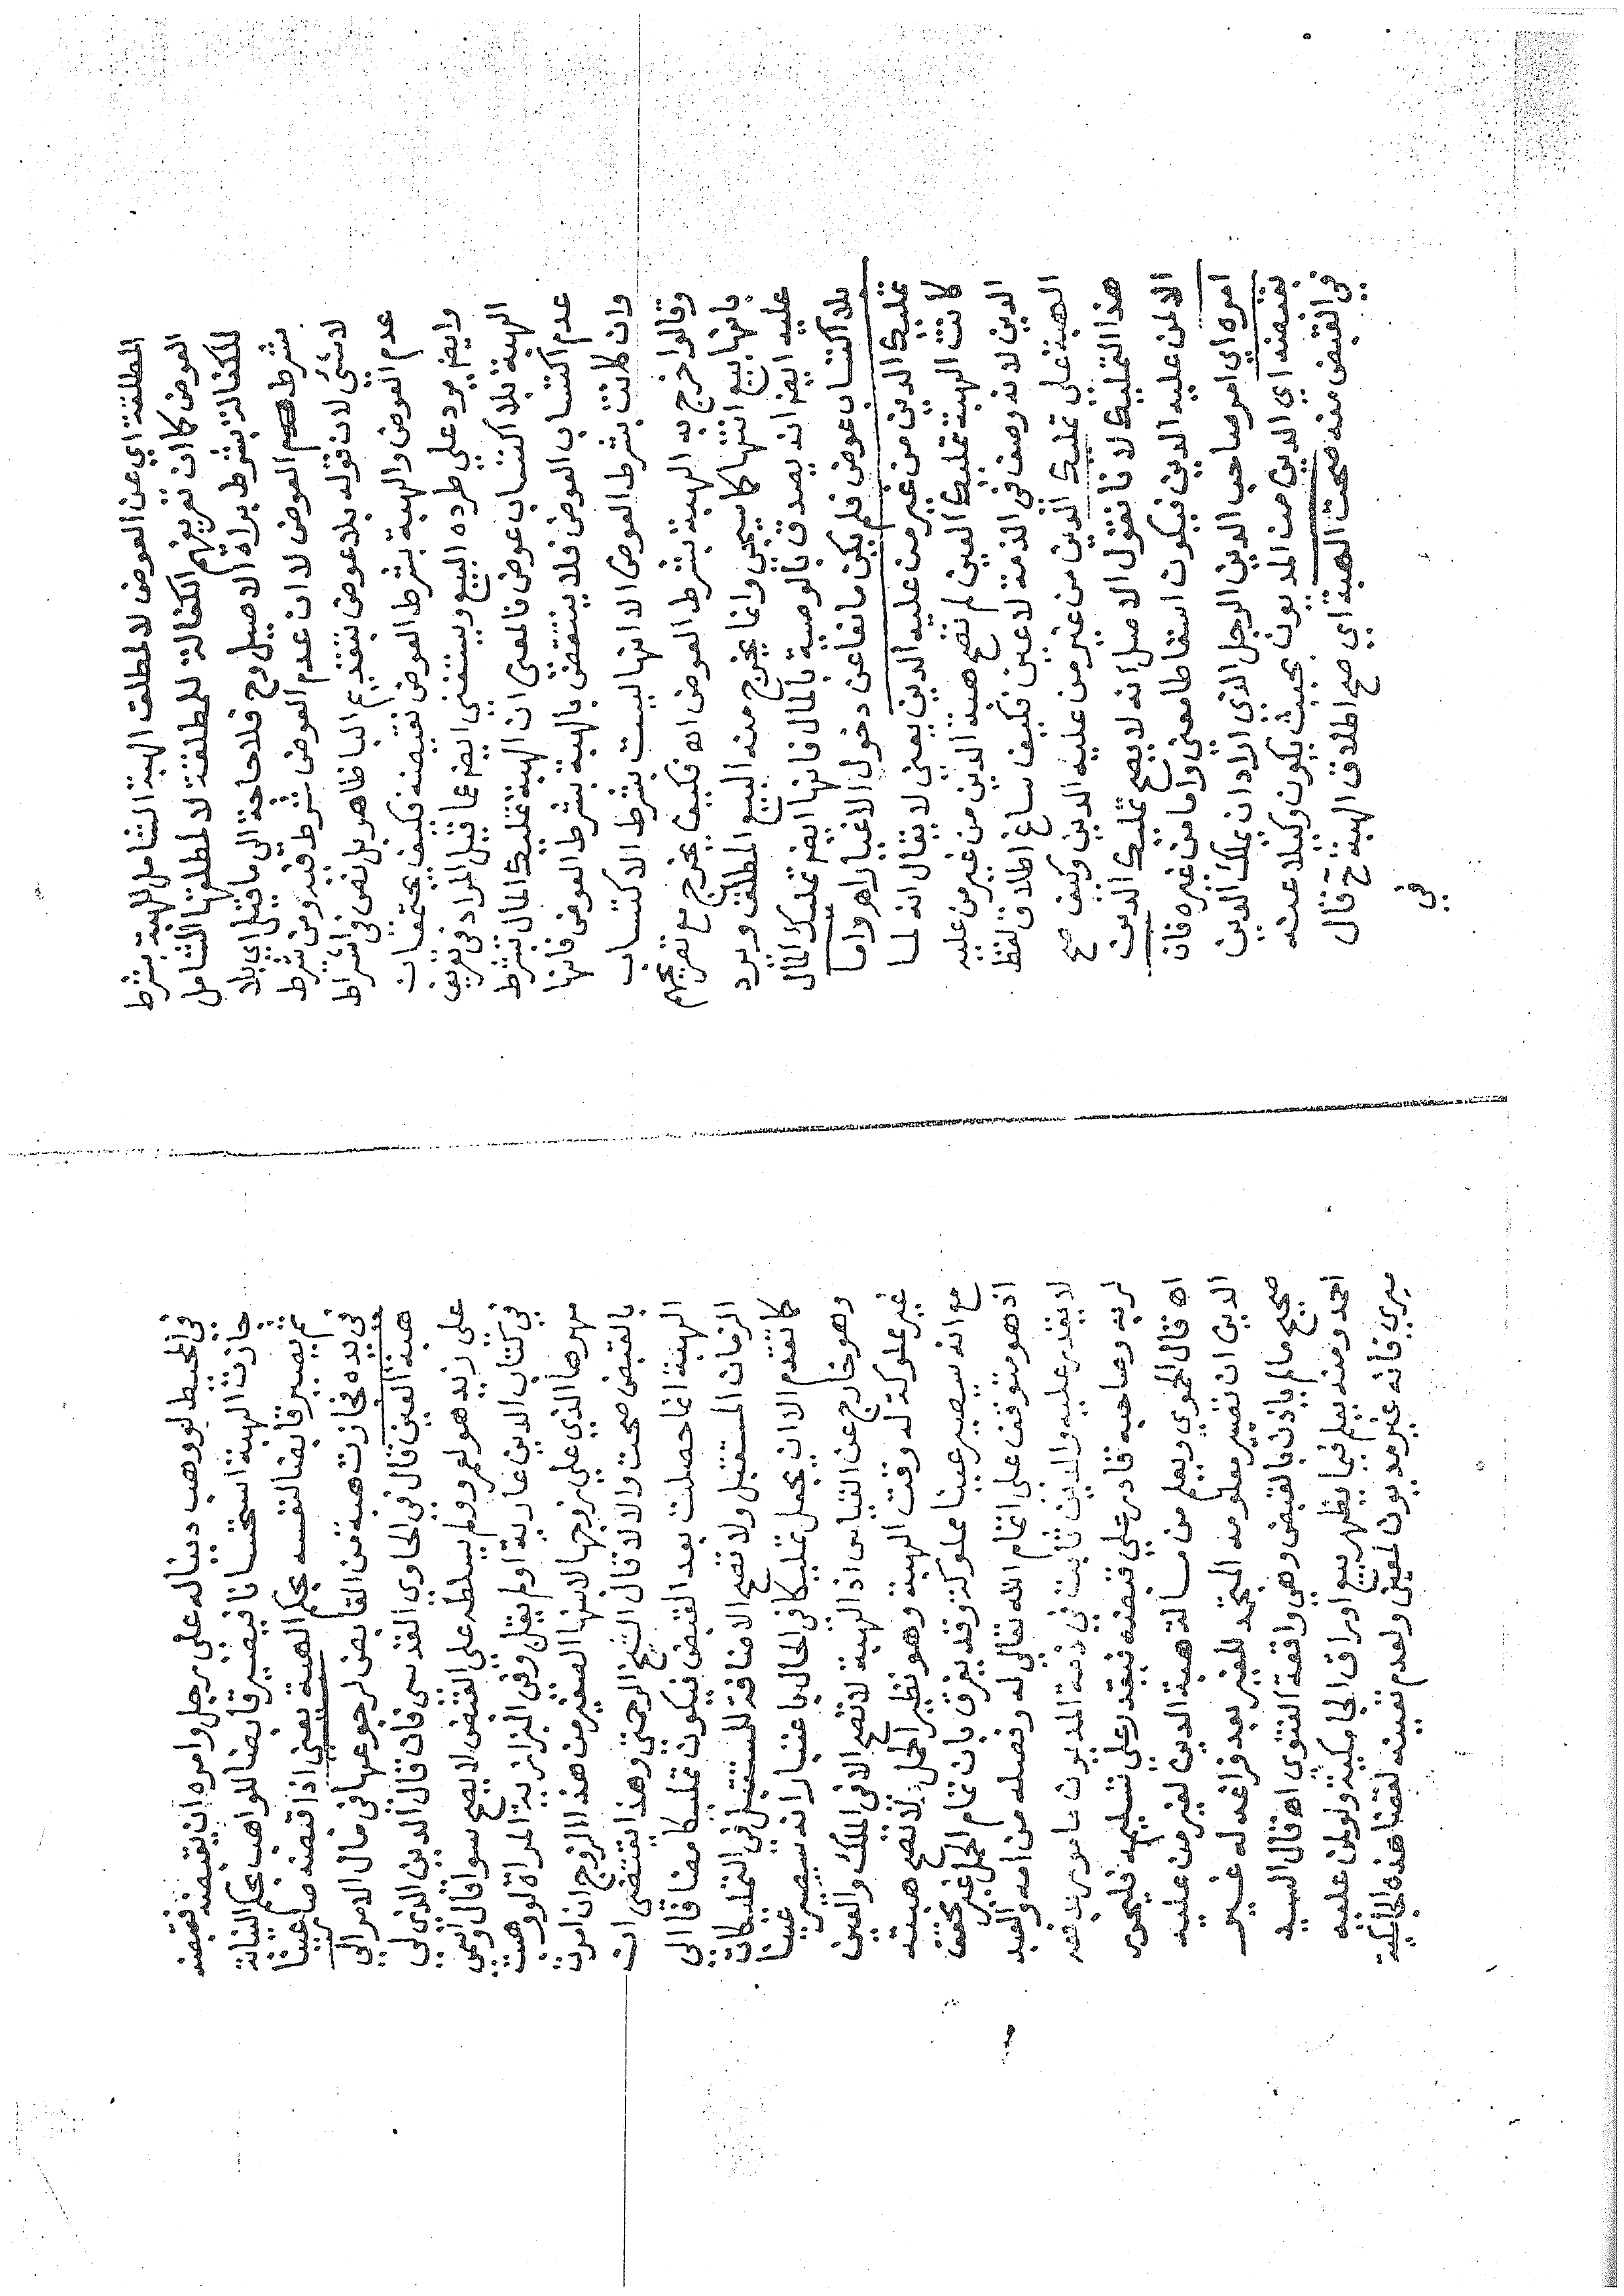 المطلقة اي عن العوض لا لمطلق الهبة الشامل للهبة بشرط
العوض كما ان تعريفهم الكفالة للمطلقة لا لمطلقها الشامل
للكفالة بشرط براة الاصيل وح فلا حاجة الى ما قيل اي بلا
شرط العوض لا ان عدم العوض شرط فيه ومن شرط
لا شئ لان قوله بلا عوض بتقديم البا ظاهر بل نص في اشراط
عدم العوض والهبة بشرط العوض نقيضه فكيف يجتمعان
وايضا يرد على طرده البيع ويستغني ايضا عما قيل المراد في تعريف
الهبة بلا اكتساب عوض فالمعنى ان الهبة تمليك المال بشرط
عدم اكتساب العوض فلا ينتقض بالهبة بشرط العوض فانها
وان كانت بشرط العوض الا انها ليست بشرط الاكتساب
وقالوا خرج به الهبة بشرط العوض اه فكيف يخرج مع تصريحهم
بانها بيع انتها كما سيجئ وانما يخرج منه البيع المطلق ويرد
عليه ايضا انه يصدق بالوصية بالمال فانها ايضا تمليك المال
بلا اكتساب عوض فلم يكن مانعا عن دخول الاغيار اهـ واما
تمليك الدين من غير من عليه الدين يعني لا يقال انه لما
كانت الهبة تمليك العين لم تصح هبة الدين من غير من عليه
الدين لانه وصف في الذمة لا عين فكيف ساغ اطلاق لفظ
الهبة على تمليك الدين من غير من عليه الدين وكيف صح
هذا التمليك لانا نقول الاصل انه لا يصح تمليك الدين
الا لمن عليه الدين فيكون اسقاطا معنى واما من غيره فان
امره اي امر صاحب الدين الرجل الذي اراد ان يملك الدين
بقبضه اي الدين من المديون بحيث يكون وكيلا عنه
في القبض منه صحت الهبة اي صح اطلاق الهبة ح قال
في
في المحيط لو وهب دينا له على رجل وامره ان يقبضه فقبضه
جازت الهبة استحسانا فيصير قابضا للواهب بحكم النيابة
ثم يصير قابضا لنفسه بحكم الهبة يعني اذا قبضه صار عينا
في يده فجازت هبته من القابض لرجوعها في مال الامر الى
هبة العين قال في الحاوي القدسي فان قال الدين الذي لي
على زيد هو لعمرو ولم يسلطه على القبض لا يصح سوا قال واسمي
في كتاب الدين عارية او لم يقل وفي البزازية المراة لو وهبت
مهرها الذي على زوجها لابنها الصغير من هذا الزوج ان امرت
بالقبض صحت والا لا قال الشيخ الرحمتي وهذا يقتضي ان
الهبة انما حصلت بعد القبض فيكون تمليكا مضافا الى
الزمان المستقبل ولا تصح الاضافة للمستقبل في التمليكات
كما تقدم الا ان يجعل تمليكا في الحال باعتبار انه سيصير عينا
وهو خارج عن القياس اذ الهبة لا تصح الا في الملك والعين
غير مملوكة له وقت الهبة وهو نظير الحمل لا تصح هبته
مع انه سيصير عينا مملوكة وقد يفرق بان تمام الحمل غير محقق
اذ هو متوقف على اتمام الله تعالى له وفصله من امه والعبد
لا يقدر عليه والدين ثابت في ذمة المديون مامور بدفعه
لربه وصاحبه قادر على قبضه فيقدر على تسليمه فليحرر
اه قال الحموي ويعلم من مسالة هبة الدين لغير من عليه
الدين ان تقييد معلومه المتجمد للغير بعد فراغه له غير
صحيح ما لم ياذن بالقبض وهي واقعة الفتوى اه قال السيد
احمد ومنه يعلم فيما يظهر بيع اوراق الجامكية ولو لمن عليه
ميري فانه غير مديون لمعين ولعدم تعيينه لقضا هذه الجامكية